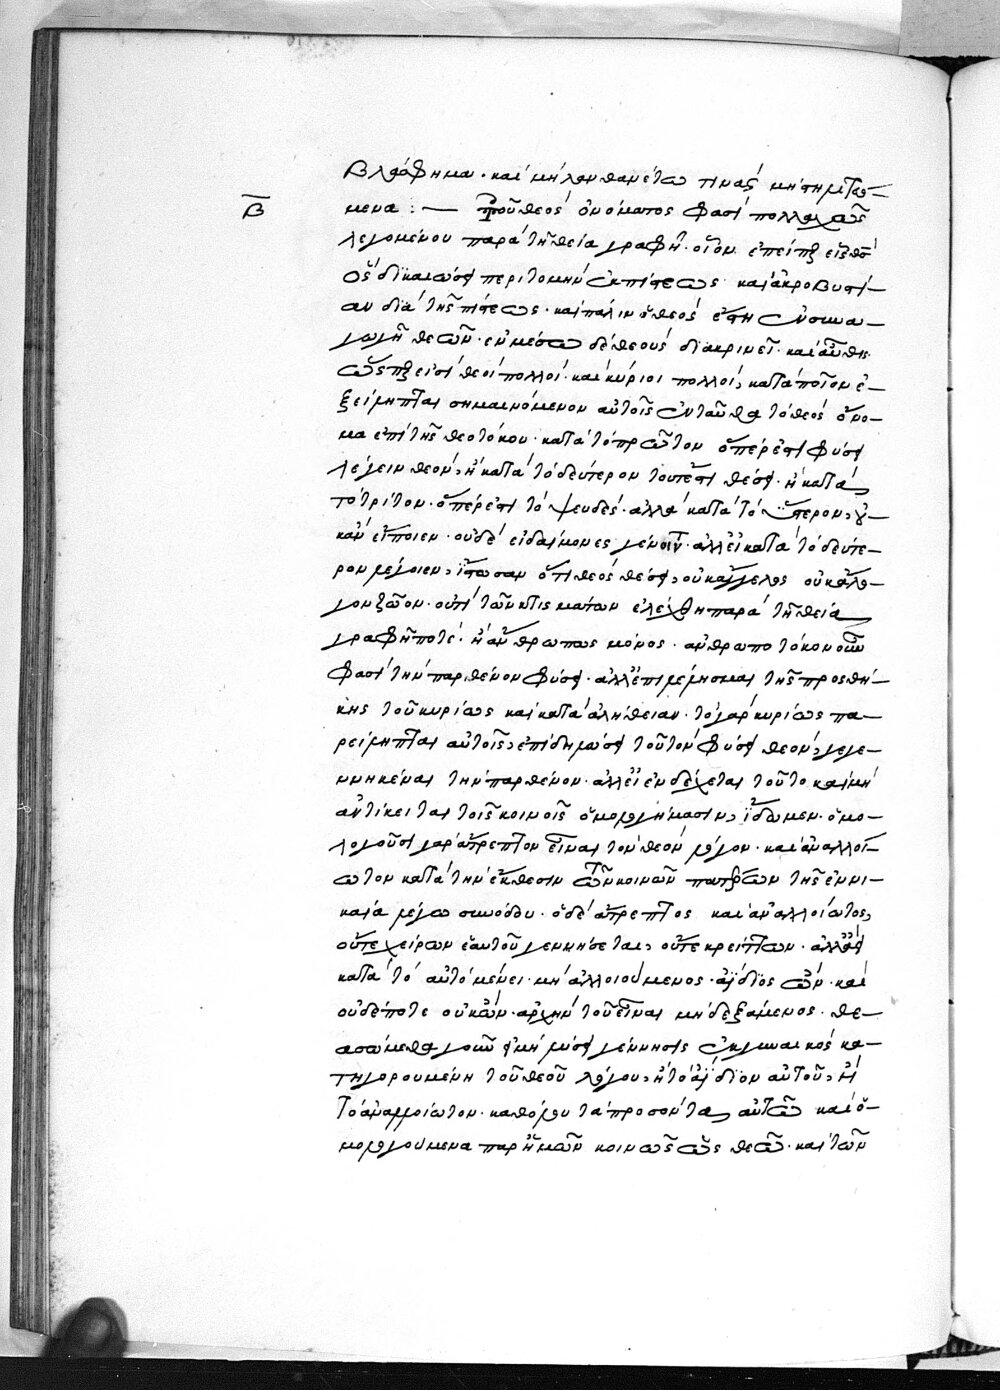 βλάσφημα· καὶ μὴ λανθανέτω τινὰς μὴ τημε
β̄
μενα :— Τοῦ θεὸς ὀνόματος φασὶ πολλαχῶς
λεγομένου παρὰ τῆ θεία γραφῆ· οἷον ἐπείπερ εἷς θεὸς
ὃς δικαιώσει περιτομὴν ἐκ πίστεως· καὶ ἀκροβυστί-
αν διὰ τῆς πίστεως· καὶ πάλιν ὁ θεὸς ἔστη ἐν συνα-
γωγῆ θεῶν· ἐν μέσω δὲ θεοὺς διακρινεῖ· καὶ αὖθις
ὥσπερ εἰσὶ θεοὶ πολλοί· καὶ κύριοι πολλοί, κατὰ ποῖον ἐ-
ξείρηται σημαινόμενον αὐτοῖς ἐνταῦθα τὸ θεὸς ὄνο-
μα ἐπὶ τῆς θεοτόκου· κατὰ τὸ πρῶτον ὅπερ ἐστὶ φύσει
λέγειν θεόν, ἢ κατὰ τὸ δεύτερον τουτέστι θέσει· ἢ κατὰ
τὸ τρίτον· ὅπερ ἐστὶ τὸ ψευδές· ἀλλὰ κατὰ τὸ ὕστερον, οὐ-
κ ἂν εἴποιεν· οὐδὲ εἰ δαίμονες γένοιντο· ἀλλ' εἰ κατὰ τὸ δεύτε-
ρον λέγοιεν, ἴστωσαν ὅτι θεὸς θέσει, οὐκ ἄγγελος οὐκ ἄλο-
γον ζῶον· οὔτι τῶν κτισμάτων ἐλέχθη παρὰ τῆ θεία
γραφῆ ποτέ· ἢ ἄνθρωπος μόνος· ἀνθρωποτόκον οὖν
φασὶ τὴν παρθένον φύσει· ἀλλ' ἐπιμέμησμαι τῆς προσθή-
κης τοῦ κυρίως καὶ κατὰ ἀλήθειαν· τὸ γὰρ κυρίως πα-
ρείρηται αὐτοῖς, ἐπιδημώσει τοῦτον φύσει θεὸν, γεγε-
ννηκέναι τὴν παρθένον· ἀλλ' εἰ ἐνδέχεται τοῦτο καὶ μὴ
ἀντίκειται τοῖς κοινοῖς ὁμολογήμασιν, ἴδωμεν· ὁμο-
λογοῦσι γὰρ ἄτρεπτον εἶναι τὸν θεὸν λόγον· καὶ ἀναλλοί-
ωτον κατὰ τὴν ἔκθεσιν τῶν κοινῶν πατέρων τῆς ἐν νι-
καία μεγάλου συνόδου· ὁ δὲ ἄτρεπτος καὶ ἀναλλοίωτος,
οὔτε χείρων ἑαυτοῦ γεννήσεται, οὔτε κρείττων· ἀλλ' ἀεὶ
κατὰ τὸ αὐτὸ μένει· μὴ ἀλλοιούμενος· ἀΐδιος ὢν· καὶ
οὐδέποτε οὐκ ὤν· ἀρχὴν τοῦ εἶναι μὴ δεξάμενος· θε-
ασώμεθα γοῦν εἰ μὴ λύσει γέννησις ἐκ γυναικὸς κα-
τηγορουμένη τοῦ θεοῦ λόγου, ἢ τὸ ἀΐδιον αὐτοῦ, ἢ
τὸ ἀναλλοίωτον· καθόλου τὰ προσόντα αὐτῶ καὶ ὁ-
μολογούμενα παρ' ἡμῶν κοινῶς ὡς θεῶ· καὶ τῶν